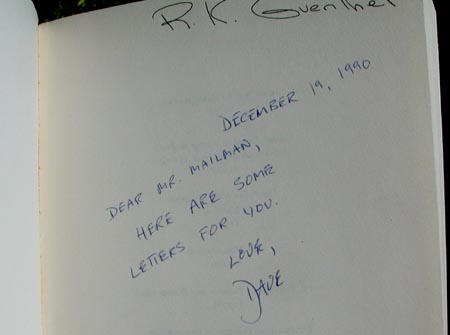 R.K. Guenther
DECEMBER 19, 1990
DEAR MR. MAILMAN,
HERE ARE SOME
LETTERS FOR YOU.
LOVE,
DAVE